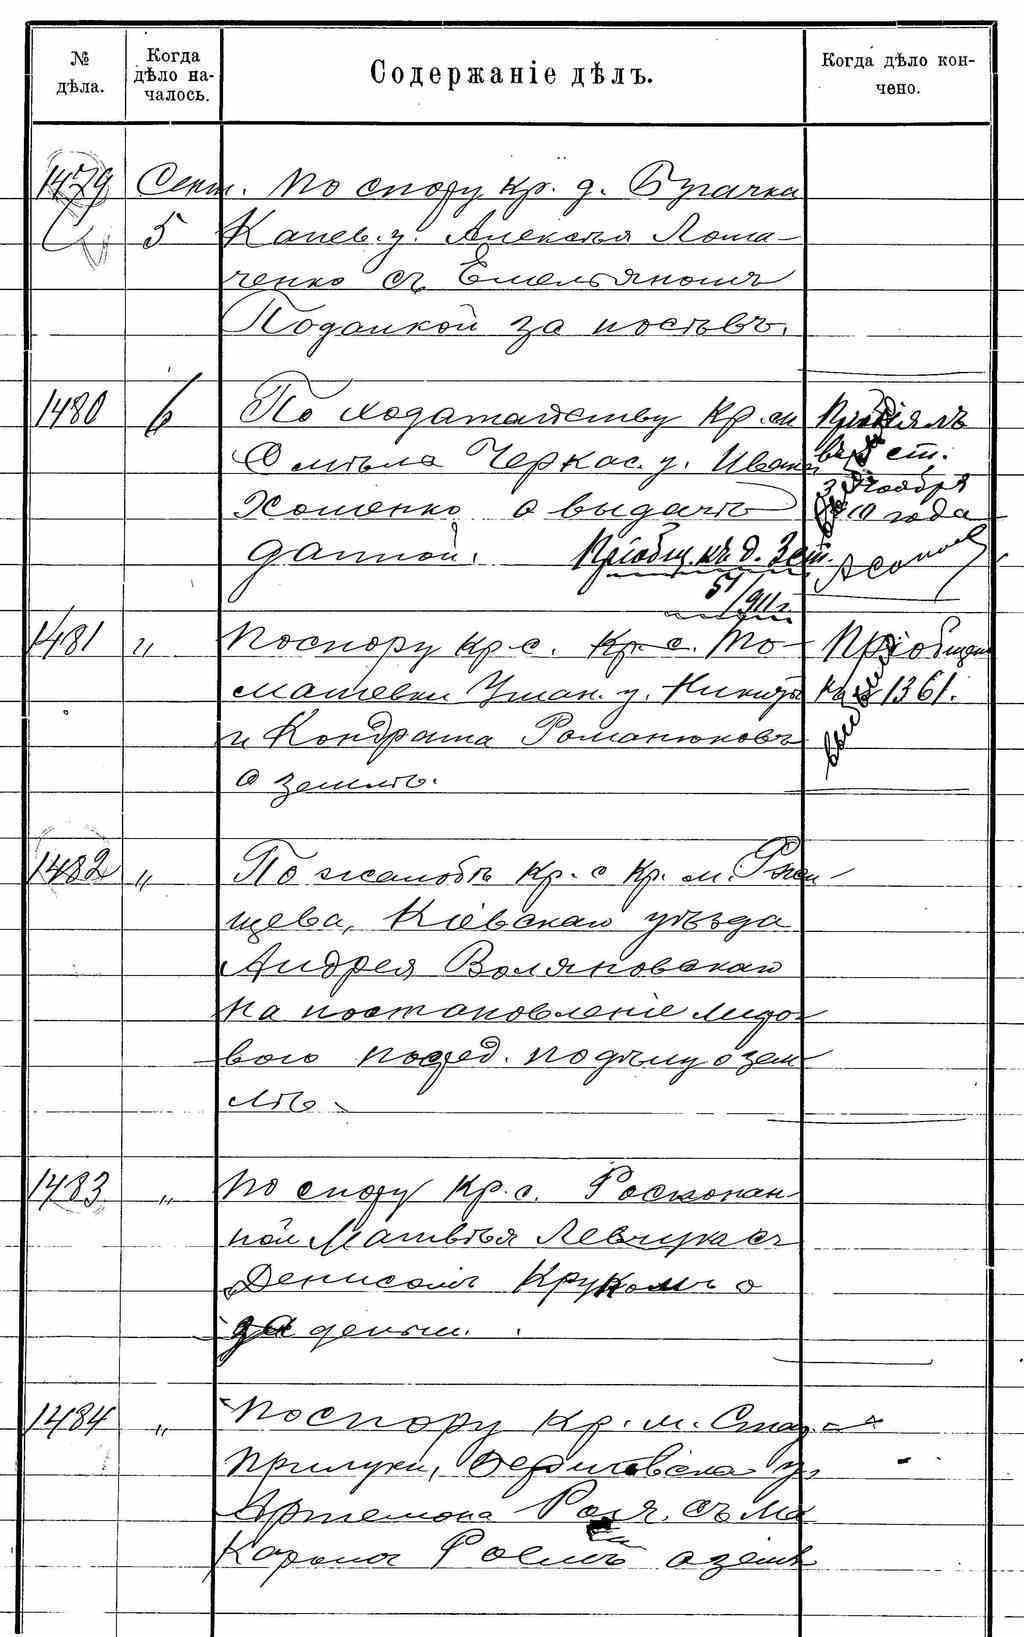 № дѣла.
Когда дѣло на-
чалось.
Содержаніе дѣлъ.
Когда дѣло кон-
чено.
1479 Сент. По спору кр. д. Бугачка
5 Канев. у. Алексѣя Лома-
ченко съ Емельяномъ
Подалкой за посѣвъ.
1480 6 По ходатайству кр. м.
Смѣла Черкас. у. Ивана
Хоменко о выдачѣ
данной. Пріобщ. къ д. 3 ст.
51/911 г.
3 ст.
3 ноября
10 года
1481 " По спору кр. с. кр. с. То-
машевки Уман. у. Никиты
и Кондрата Романюковъ
о землѣ.
Пріобщено
къ 1361.
1482 " По жалобѣ кр. с кр. м. Ржи-
щева, Кіевскаго уѣзда
Андрея Воляновскаго
на постановленіе миро-
вого посред. по дѣлу о зем-
лѣ.
1483 " По спору кр. с. Роскопан-
ной Матвѣя Левчука съ
Денисомъ Крукомъ о
за деньги.
1484 " По спору кр. м. Стар.
Прилуки, Бердичевска у.
Артемона Роля. съ Ма
каромъ Роемъ о земл